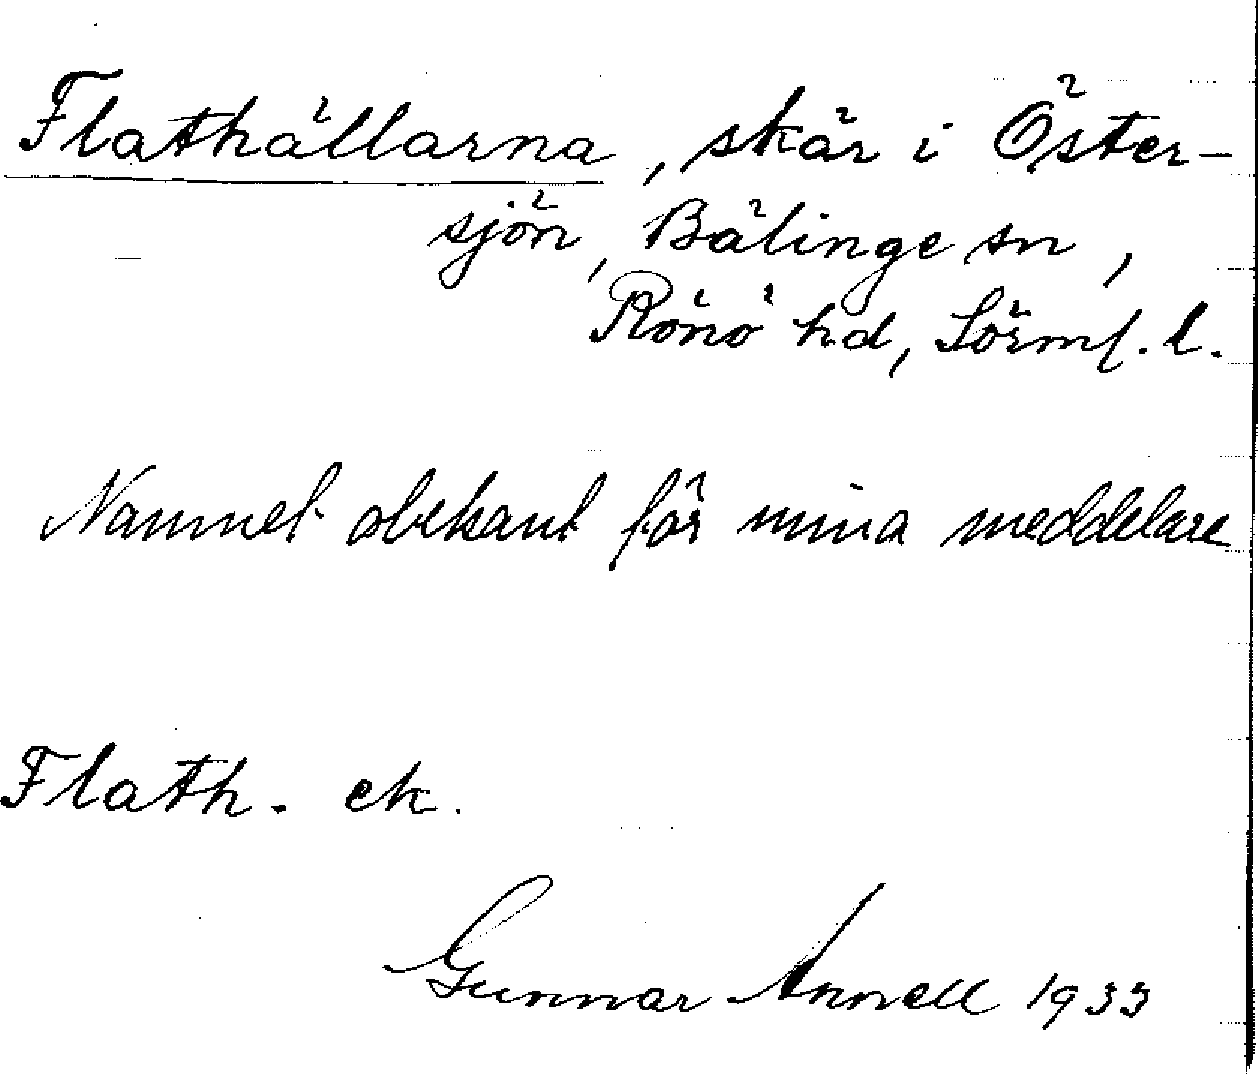 Flathällarna, skär i Öster-
sjön, Bälinge sn,
Rönö hd, Sörml. l.
Namnet obekant för mina meddelare
Flath. ek.
Gunnar Annell 1933